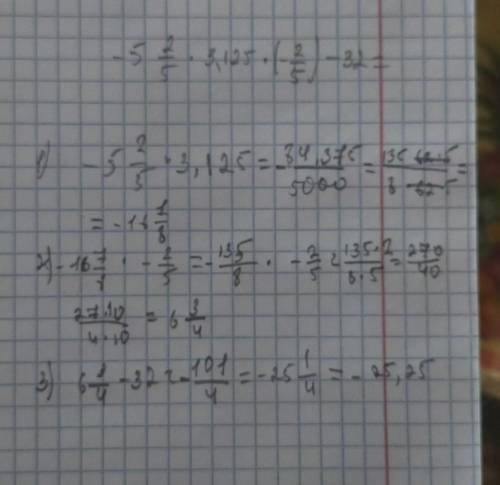 -5 2/5 · 3,125 · (-2/5) - 32 =
1) -5 2/5 · 3,125 = -84,375/5000 = 135 · 625/8 · 625 =
= -16 7/8
2) -16 7/8 · -2/5 = -135/8 · -2/5 = 135·2/8·5 = 270/40
27·10/4·10 = 6 3/4
3) 6 3/4 - 32 = -101/4 = -25 1/4 = -25,25